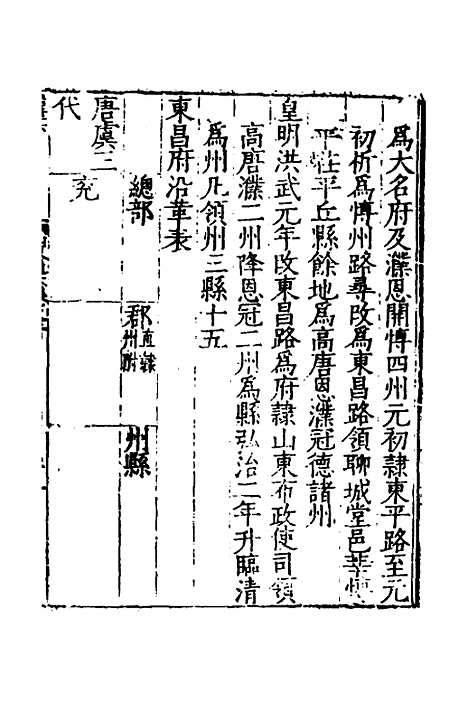 爲大名府及濮恩開愽四州元初隸東平路至元
初析爲愽州路尋改爲東昌路領聊城堂邑莘愽
平茌平丘縣餘地爲高唐恩濮冠德諸州
皇明洪武元年改東昌路爲府隸山東布政使司領
高唐濮二州降恩冠二州爲縣弘治二年升臨清
爲州凡領州三縣十五
東昌府沿革表
總部
郡直隸州附
州縣
唐虞三代
兖